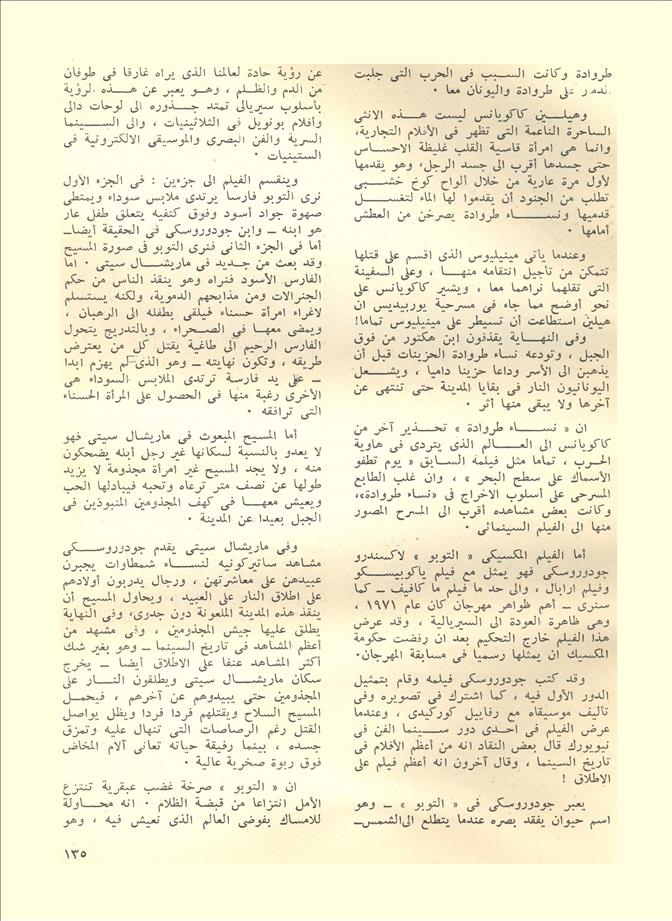 طروادة وكانت السبب فى الحرب التى جلبت
الدمار على طروادة واليونان معا ٠
وهيلين كاكويانس ليست هذه الانثى
الساحرة الناعمة التى تظهر فى الأفلام التجارية،
وانما هى امرأة قاسية القلب غليظة الاحساس
حتى جسدها أقرب الى جسد الرجل، وهو يقدمها
لأول مرة عارية من خلال ألواح كوخ خشبى
تطلب من الجنود أن يقدموا لها الماء لتغسل
قدميها ونساء طروادة يصرخن من العطش
أمامها ٠
وعندما يأتى مينيليوس الذى اقسم على قتلها
تتمكن من تأجيل انتقامه منها ، وعلى السفينة
التى تقلهما نراهما معا ، ويشير كاكويانس على
نحو أوضح مما جاء فى مسرحية يوربيديس ان
هيلين استطاعت أن تسيطر على مينيليوس تماما!
وفى النهاية يقذفون ابن هكتور من فوق
الجبل ، وتودعه نساء طروادة الحزينات قبل أن
يذهبن الى الأسر وداعا حزينا داميا ، ويشعل
اليونانيون النار فى بقايا المدينة حتى تنتهى عن
آخرها ولا يبقى منها أثر ٠
ان « نساء طروادة » تحذير آخر من
كاكويانس الى العالم الذى يتردى فى هاوية
الحرب ، تماما مثل فيلمه السابق « يوم تطفو
الأسماك على سطح البحر » ، وان غلب الطابع
المسرحى على أسلوب الاخراج فى «نساء طروادة»،
وكانت بعض مشاهده أقرب الى المسرح المصور
منها الى الفيلم السينمائى ٠
أما الفيلم المكسيكى « التوبو » لاكسندرو
جودوروسكى فهو يمثل مع فيلم ياكوبيسكو
وفيلم ارابال ، والى حد ما فيلم ما كافيف ــ كما
سنرى ــ أهم ظواهر مهرجان كان عام ١٩٧١ ،
وهى ظاهرة العودة الى السيريالية ، وقد عرض
هذا الفيلم خارج التحكيم بعد ان رفضت حكومة
المكسيك ان يمثلها رسميا فى مسابقة المهرجان٠
وقد كتب جودوروسكى فيلمه وقام بتمثيل
الدور الأول فيه ، كما اشترك فى تصويره وفى
تأليف موسيقاه مع رفاييل كوركيدى ، وعندما
عرض الفيلم فى احدى دور سينما الفن فى
نيويورك قال بعض النقاد انه من أعظم الأفلام فى
تاريخ السينما ، وقال آخرون انه أعظم فيلم على
الاطلاق !
يعبر جودوروسكى فى « التوبو » ــ وهو
اسم حيوان يفقد بصره عندما يتطلع الى الشمس ــ
عن رؤية حادة لعالمنا الذى يراه غارقا فى طوفان
من الدم والظلم ، وهو يعبر عن هذه الرؤية
بأسلوب سيريالى تمتد جذوره الى لوحات دالى
وأفلام بونويل فى الثلاثينيات ، والى السينما
السرية والفن البصرى والموسيقى الالكترونية فى
الستينيات ٠
وينقسم الفيلم الى جزءين : فى الجزء الأول
نرى التوبو فارسا يرتدى ملابس سوداء ويمتطى
صهوة جواد أسود وفوق كتفيه يتعلق طفل عار
هو ابنه ــ وابن جودوروسكى فى الحقيقة أيضا ــ
أما فى الجزء الثانى فنرى التوبو فى صورة المسيح
وقد بعث من جديد فى ماريشال سيتى ٠ أما
الفارس الأسود فنراه وهو ينقذ الناس من حكم
الجنرالات ومن مذابحهم الدموية، ولكنه يستسلم
لاغراء امرأة حسناء فيلقى بطفله الى الرهبان ،
ويمضى معها فى الصحراء ، وبالتدريج يتحول
الفارس الرحيم الى طاغية يقتل كل من يعترض
طريقه ، وتكون نهايته ــ وهو الذى لم يهزم ابدا
ــ على يد فارسة ترتدى الملابس السوداء هى
الأخرى رغبة منها فى الحصول على المرأة الحسناء
التى ترافقه ٠
أما المسيح المبعوث فى ماريشال سيتى فهو
لا يعدو بالنسبة لسكانها غير رجل أبله يضحكون
منه ، ولا يجد المسيح غير امرأة مجذومة لا يزيد
طولها عن نصف متر ترعاه وتحبه فيبادلها الحب
ويعيش معها فى كهف المجذومين المنبوذين فى
الجبل بعيدا عن المدينة ٠
وفى ماريشال سيتى يقدم جودوروسكى
مشاهد ساتيركونيه لنساء شمطاوات يجبرن
عبيدهن على معاشرتهن ، ورجال يدربون أولادهم
على اطلاق النار على العبيد ، ويحاول المسيح أن
ينقذ هذه المدينة الملعونة دون جدوى، وفى النهاية
يطلق عليها جيش المجذومين ، وفى مشهد من
أعظم المشاهد فى تاريخ السينما ــ وهو بغير شك
أكثر المشاهد عنفا على الاطلاق أيضا ــ يخرج
سكان ماريشال سيتى ويطلقون النار على
المجذومين حتى يبيدوهم عن آخرهم ، فيحمل
المسيح السلاح ويقتلهم فردا فردا ويظل يواصل
القتل رغم الرصاصات التى تنهال عليه وتمزق
جسده ، بينما رفيقة حياته تعانى آلام المخاض
فوق ربوة صخرية عالية ٠
ان « التوبو » صرخة غضب عبقرية تنتزع
الأمل انتزاعا من قبضة الظلام ٠ انه محاولة
للامساك بفوضى العالم الذى نعيش فيه ، وهو
١٣٥